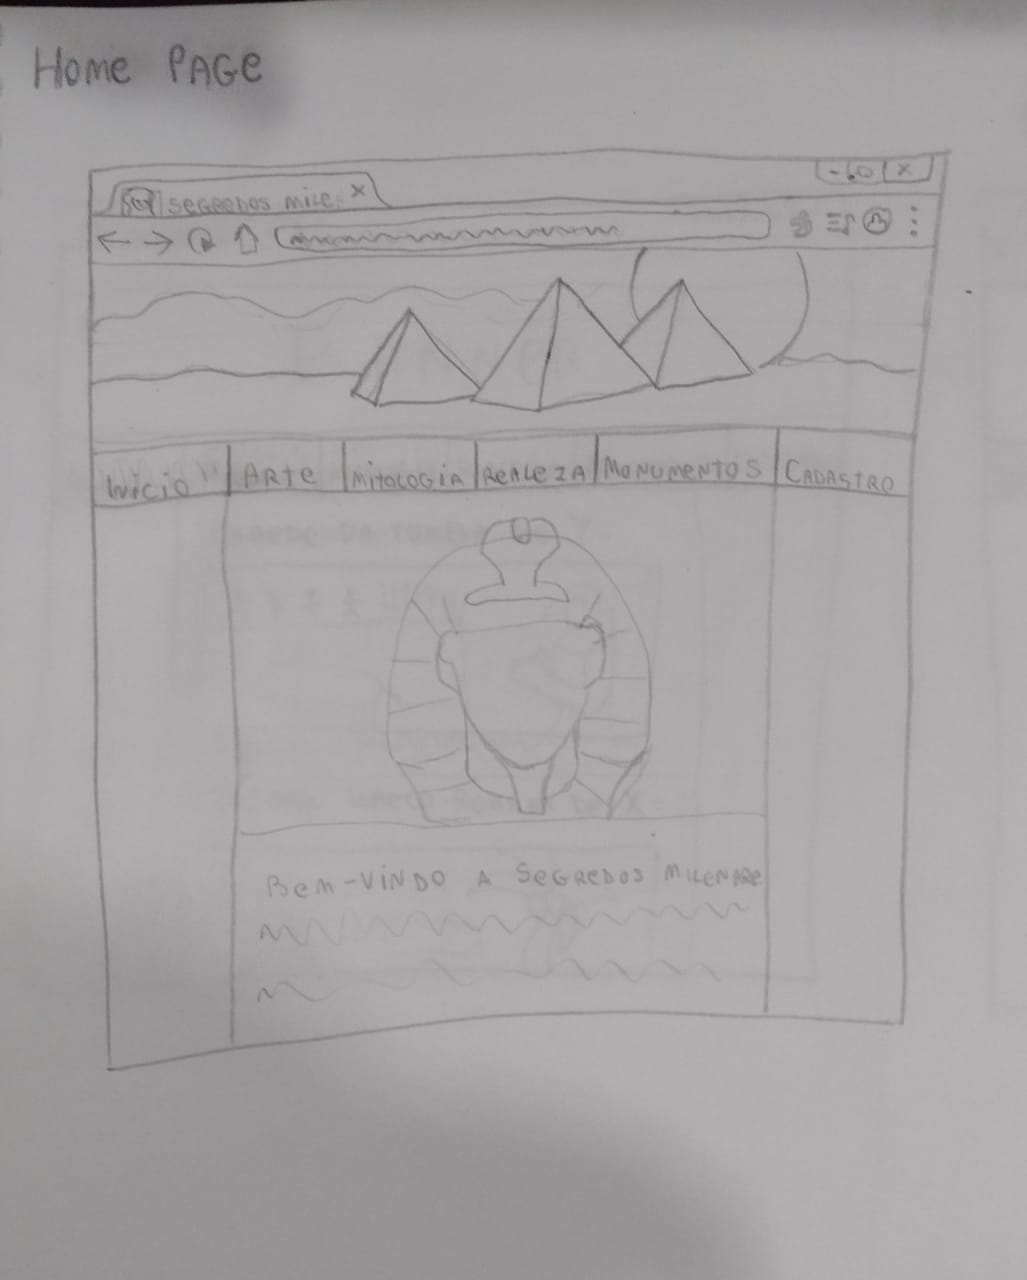 Home PAGe
SEGREDOS MILE. X
- X
INÍCIO ARTE MITOLOGIA REALEZA MONUMENTOS CADASTRO
Bem-VINDO A SeGReDOS MILENARE